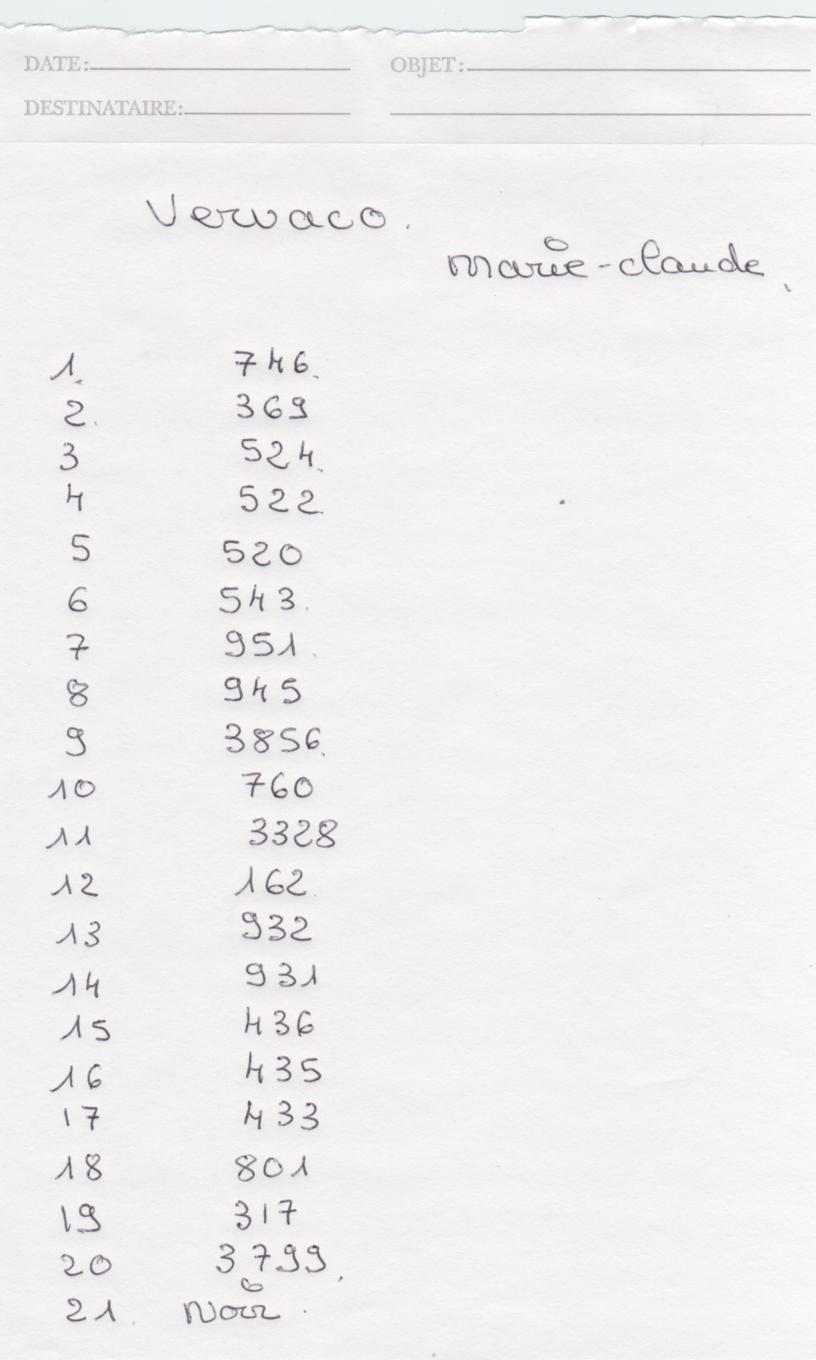 DATE: OBJET:
DESTINATAIRE:
Vervaco.
Marie-Claude,
1. 746.
2. 369
3 524.
4 522.
5 520
6 543.
7 951.
8 945
9 3856.
10 760
11 3328
12 162.
13 932
14 931
15 436
16 435
17 433
18 801
19 317
20 3799.
21. Noir.